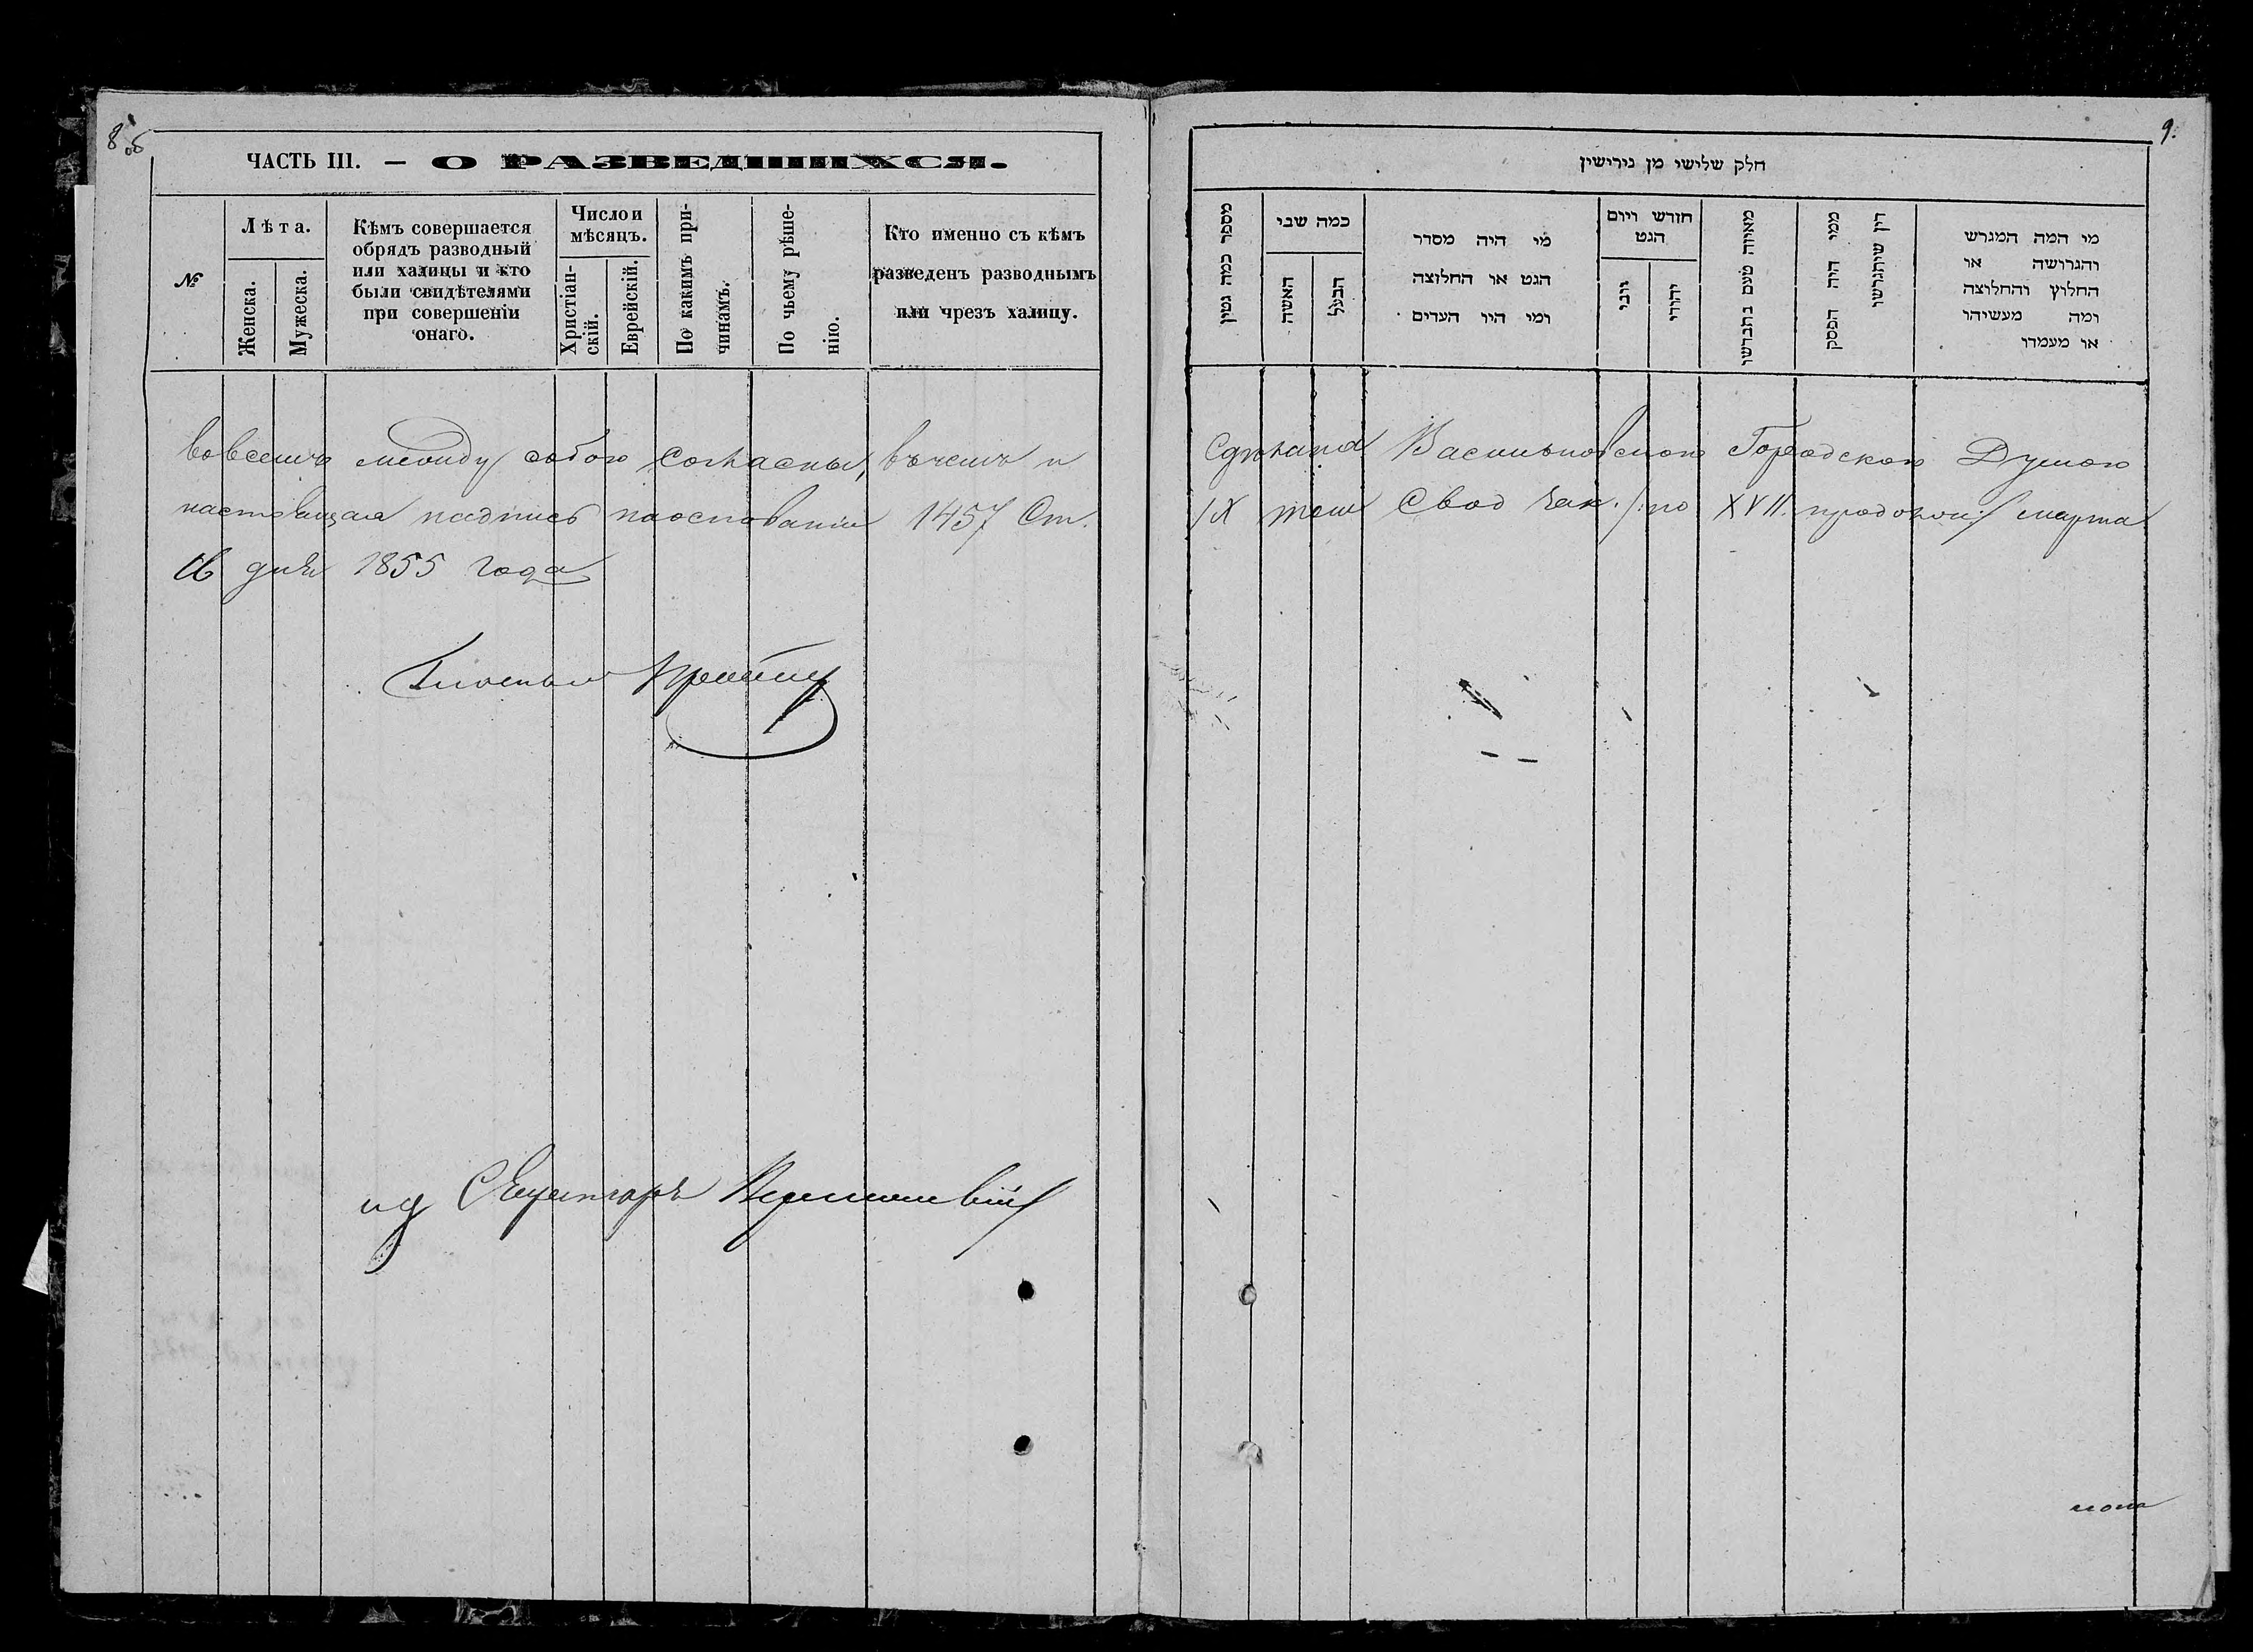 8об
ЧАСТЬ III. — О РАЗВЕДШИХСЯ.
№
Лѣта.
Женска.
Мужеска.
Кѣмъ совершается
обрядъ разводный
или халицы и кто
были свидѣтелями
при совершеніи
онаго.
Число и
мѣсяцъ.
Христіан-
скій.
Еврейскій.
По какимъ при-
чинамъ.
По чьему рѣше-
нію.
Кто именно съ кѣмъ
разведенъ разводнымъ
или чрезъ халицу.
вовсемъ между собою согласны, въчемъ и
настоящая надпись наосновании 1457 Ст.
16 дня 1855 года
ид Секретаря
9.
חלק שלישי מן גירושין
מספר כמה גטין
כמה שני
האשה
הבעל
מי היה מסדר
הגט או החלוצה
ומי היו העדים
חודש ויום
הגט
יוני
יהודי
מאיזה טעם נתגרשו
ממי היה הפסק
דין שיתגרשו
מי המה המגרש
והגרושה או
החלוץ והחלוצה
ומה מעשיהו
או מעמדו
Сдѣлана Васильковскою Городскою Думою
IX том Свод Зак. /:по XVII. продолж:/ марта